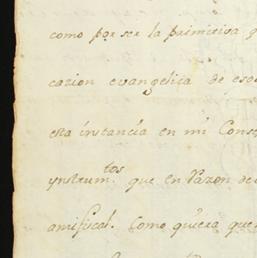 como por ser la primitiva q
cazion evangelica de esos
esta instancia en mi Conse
ynstrum.tos que en Razon de
amifiscal. Como quiera que